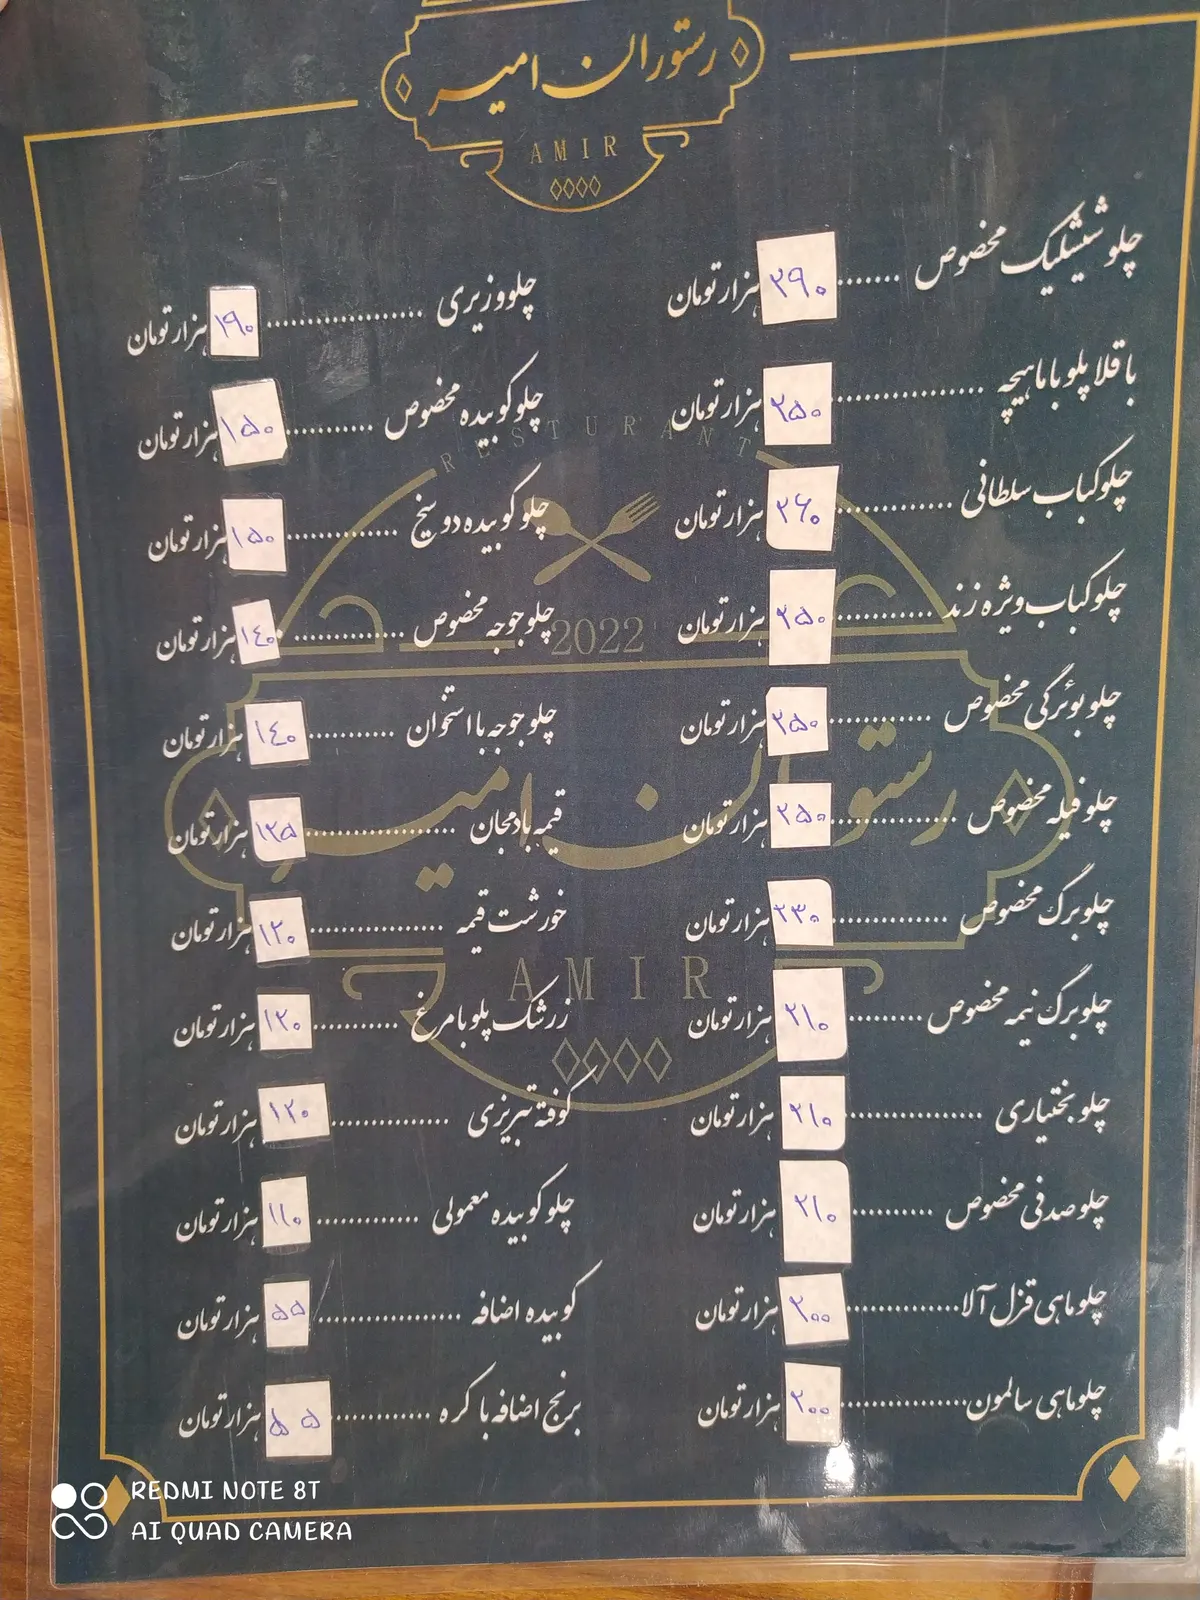 رستوران امیر
AMIR
چلو شیشلیک مخصوص ....... ۲۹۰ هزار تومان
باقلا پلو با ماهیچه ............... ۲۵۰ هزار تومان
چلو کباب سلطانی ............ ۲۶۰ هزار تومان
چلو کباب ویژه زند ............ ۲۵۰ هزار تومان
چلو بوئرگی مخصوص ............ ۲۵۰ هزار تومان
چلو فیله مخصوص ............... ۲۵۰ هزار تومان
چلو برگ مخصوص .............. ۲۳۰ هزار تومان
چلو برگ نیمه مخصوص ......... ۲۱۰ هزار تومان
چلو بختیاری ................. ۲۱۰ هزار تومان
چلو صدفی مخصوص .......... ۲۱۰ هزار تومان
چلو ماهی قزل آلا .............. ۲۰۰ هزار تومان
چلو ماهی سالمون ................ ۲۰۰ هزار تومان
چلو وزیری ................... ۱۹۰ هزار تومان
چلو کوبیده مخصوص ........... ۱۵۰ هزار تومان
چلو کوبیده دو سیخ .............. ۱۵۰ هزار تومان
چلو جوجه مخصوص .............. ۱۴۰ هزار تومان
چلو جوجه با استخوان ........... ۱۴۰ هزار تومان
قیمه بادمجان ................... ۱۲۵ هزار تومان
خورشت قیمه ................. ۱۲۰ هزار تومان
زرشک پلو با مرغ ........... ۱۲۰ هزار تومان
کوفته تبریزی ............... ۱۲۰ هزار تومان
چلو کوبیده معمولی ............. ۱۱۰ هزار تومان
کوبیده اضافه .................. ۵۵ هزار تومان
برنج اضافه با کره ............. ۵۵ هزار تومان
RESTURANT
2022
رستوران امیر
AMIR
REDMI NOTE 8T
AI QUAD CAMERA